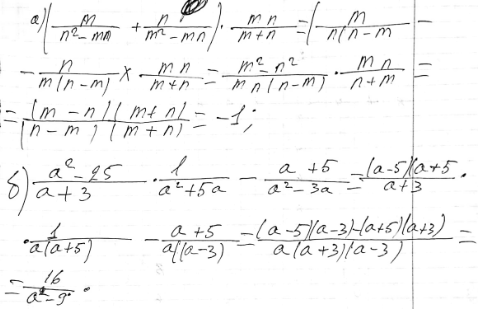 а) (m/(n²-mn) + n/(m²-mn)) · mn/(m+n) = (m/(n(n-m) -
- n/(m(n-m) × mn/(m+n) = (m²-n²)/(mn(n-m)) · mn/(n+m) =
= (m-n)(m+n)/(n-m)(m+n) = -1;
б) (a²-25)/(a+3) · 1/(a²+5a) - (a+5)/(a²-3a) = (a-5)(a+5/(a+3) ·
· 1/(a(a+5)) - (a+5)/(a(a-3)) = ((a-5)(a-3)-(a+5)(a+3))/(a(a+3)(a-3)) =
= 16/(a²-9) .